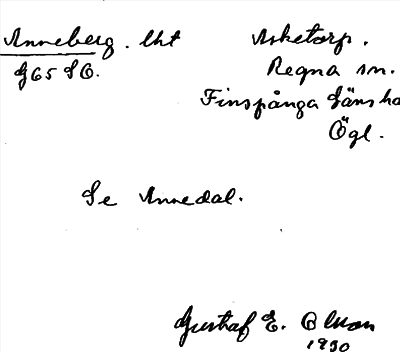 Anneberg. lht Asketorp.
G65 SO. Regna sn.
Finspånga läns hd
Ögl.
Se Annedal.
Gustaf E. Olson
1930